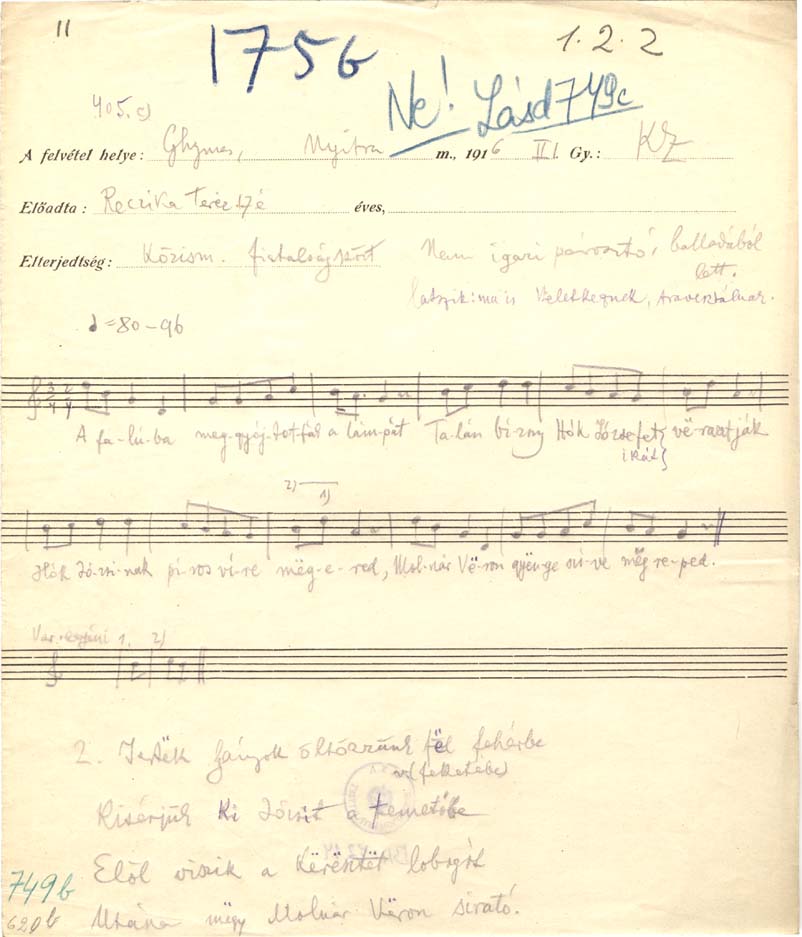 11
175b
1. 2. 2
Ne! Lásd 749c
405. c)
A felvétel helye: Ghymes, Nyitra m., 1916 III. Gy.: KZ
Előadta: Reczika Teréz 17 é éves,
Elterjedtség: Közism. fiatalság közt
Nem igazi párosító, balladából
lett.
Látszik: ma is
♩ = 80-96
A fa-lú-ba meg-gyój-tot-ták a lám-pát Ta-lán bi-zony Hók Józsefet vë-rasztják
2) 1)
Hók Jó-zsi-nak pi-ros vi-re mëg-e-red, Mol-nár Vë-ron gyën-ge szí-ve mëg-re-ped.
Var. 1. 2)
2. Lányok öltözzünk fël fehérbe
v. (feketébe)
Kisérjük ki Józsit a temetőbe
Elöl viszik a kërësztët lobogót
749b
Utána mëgy Molnár Vëron sirató.
620b